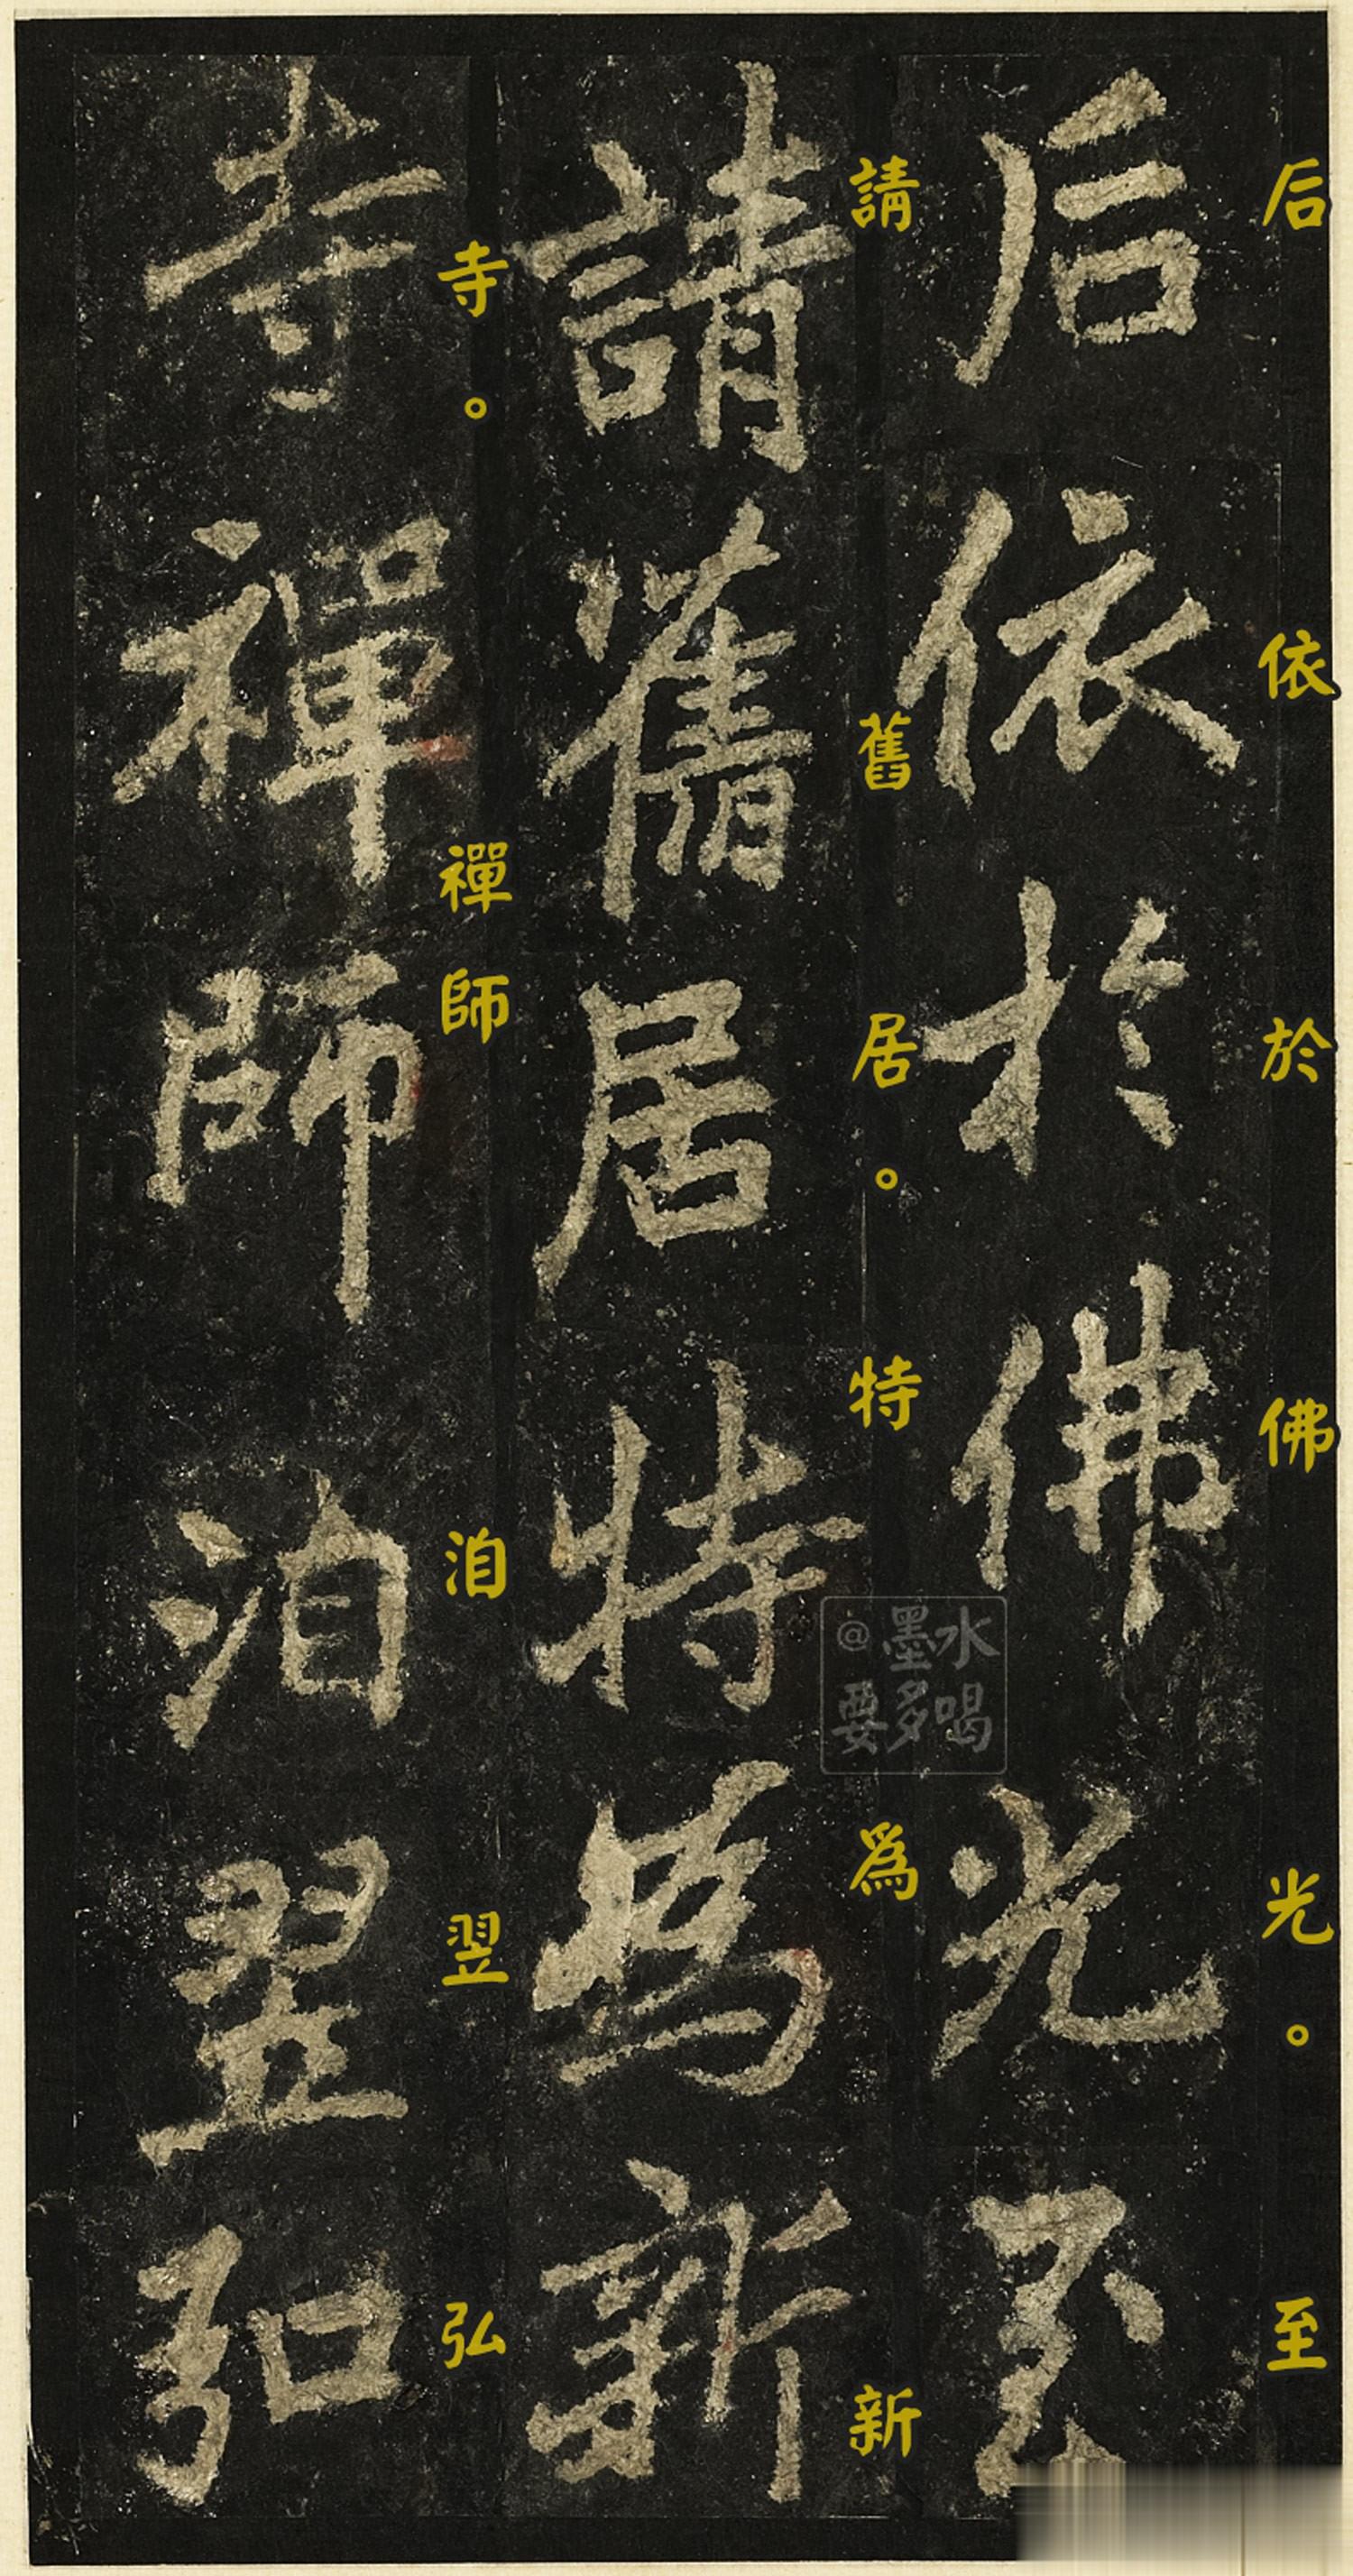 后依於佛光。至
后依於佛光至
請舊居。特爲新
請舊居特為新
寺。禪師洎翌弘
寺禪師洎翌弘
@墨水
要多喝